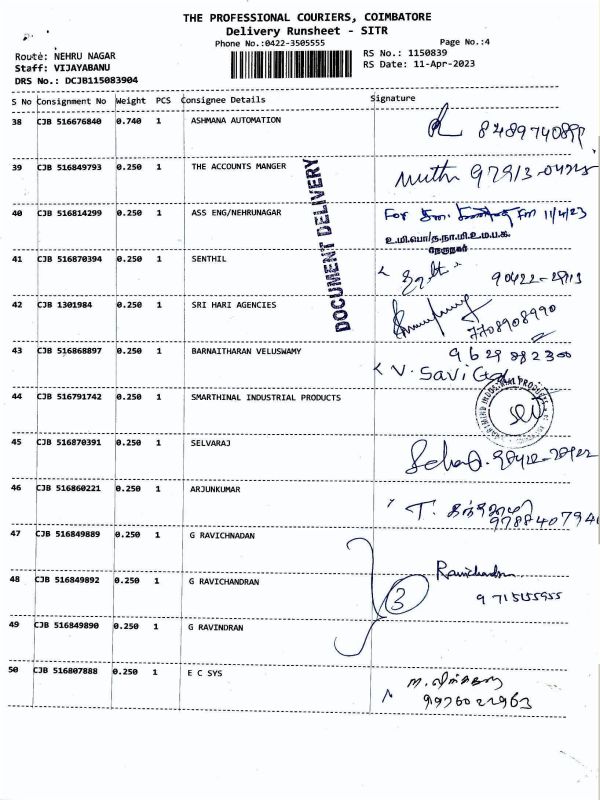 THE PROFESSIONAL COURIERS, COIMBATORE
Delivery Runsheet - SITR
Phone No.:0422-3505555 Page No.:4
Route: NEHRU NAGAR RS No.: 1150839
Staff: VIJAYABANU RS Date: 11-Apr-2023
DRS No.: DCJB115083904
S No Consignment No Weight PCS Consignee Details Signature
38 CJB 516676840 0.740 1 ASHMANA AUTOMATION
39 CJB 516849793 0.250 1 THE ACCOUNTS MANGER
40 CJB 516814299 0.250 1 ASS ENG/NEHRUNAGAR For 11/4/23
உ.மி.பொ/த.நா.மி.உ.ம.ப.க.
நேருநகர்
DOCUMENT DELIVERY
41 CJB 516870394 0.250 1 SENTHIL
42 CJB 1301984 0.250 1 SRI HARI AGENCIES 7708908990
43 CJB 516868897 0.250 1 BARNAITHARAN VELUSWAMY 9629882300
V. Savi
44 CJB 516791742 0.250 1 SMARTHINAL INDUSTRIAL PRODUCTS
45 CJB 516870391 0.250 1 SELVARAJ
46 CJB 516860221 0.250 1 ARJUNKUMAR T.
47 CJB 516849889 0.250 1 G RAVICHNADAN
48 CJB 516849892 0.250 1 G RAVICHANDRAN 3 Ravichandran
49 CJB 516849890 0.250 1 G RAVINDRAN
50 CJB 516807888 0.250 1 E C SYS